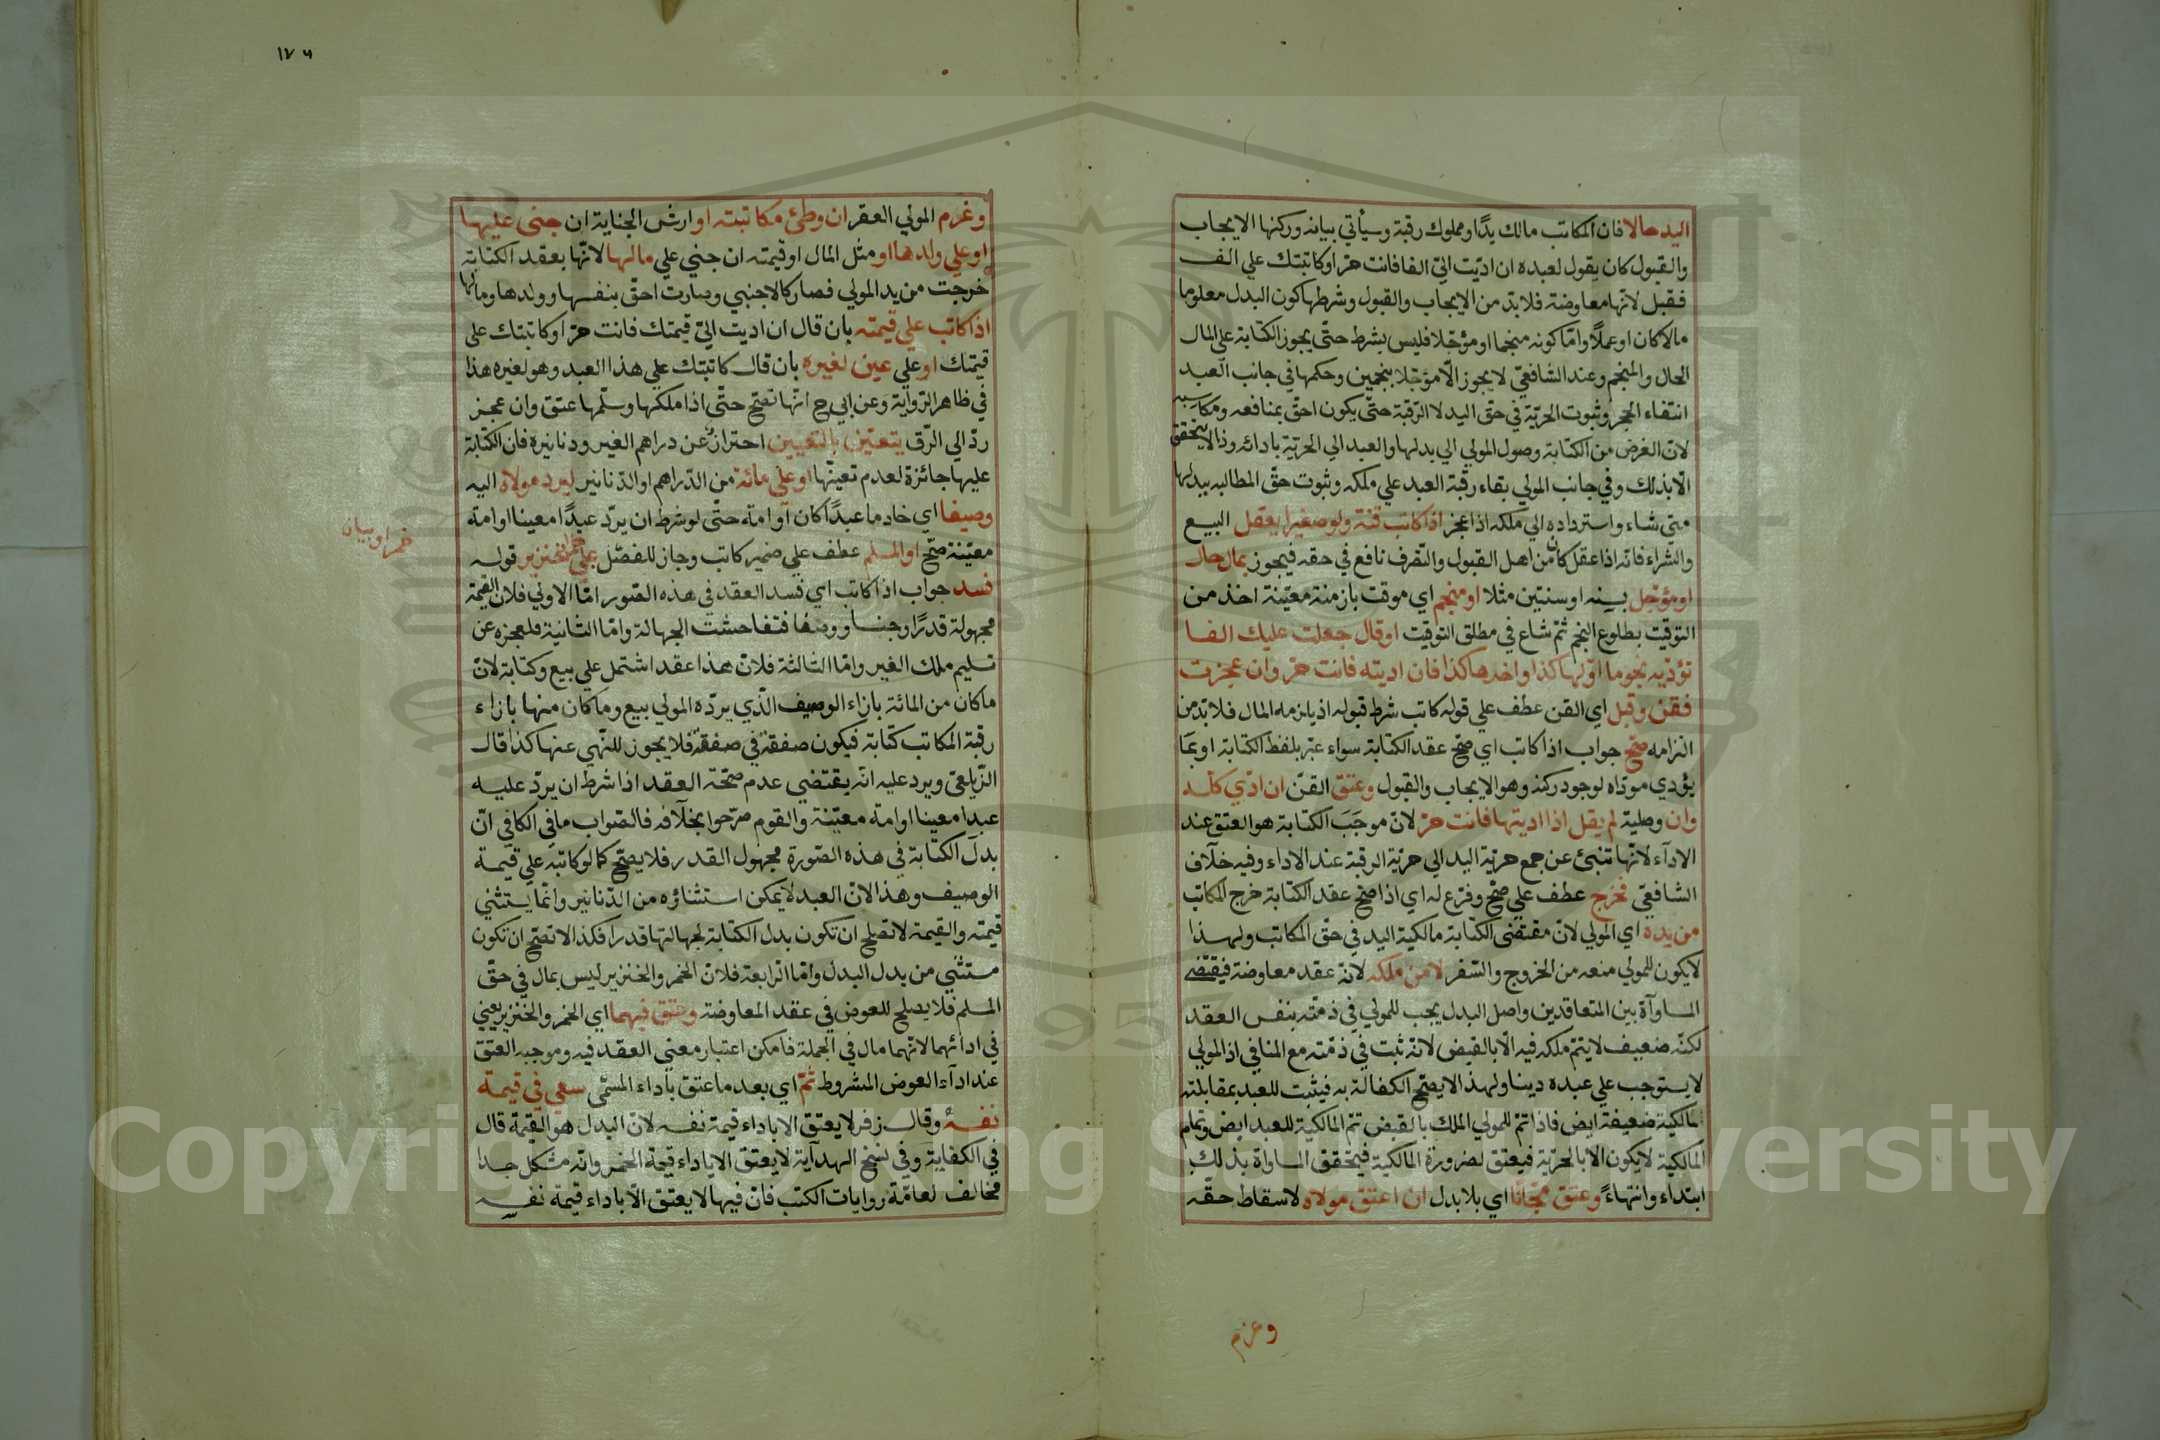 اليد حالا فان المكاتب مالك يدًا ومملوك رقبة وسيأتي بيانه وركنها الايجاب
والقبول كان يقول لعبده ان ادّيت اليّ الفا فانت حرّ او كاتبتك علي الف
فقبل لانّها معاوضة فلا بدّ من الايجاب والقبول وشرطها كون البدل معلوما
مالا كان او عملاً وامّا كونه منجما او مؤجّلا فليس بشرط حتّي يجوز الكتابة علي المال
الحال والمنجم وعند الشافعيّ لا يجوز الّا مؤجلا بنجمين وحكمها في جانب العبد
انتفاء الحجر وثبوت الحرّيّة في حقّ اليد لا الرّقبة حتّي يكون احقّ بمنافعه ومكاسبه
لانّ الغرض من الكتابة وصول المولي الي بدلها والعبد الي الحرّيّة بادائه وذا لا يتحقّق
الّا بذلك وفي جانب المولي بقاء رقبة العبد علي ملكه وثبوت حقّ المطالبه ببدلها
متي شاء واسترداده الي ملكه اذا عجز اذا كاتب قنّه ولو صغيرا يعقل البيع
والشراء فانّه اذا عقل كان من اهل القبول والتّصرف نافع في حقه فيجوز بمال حال
او مؤجل بسنه او سنتين مثلا او منجم اي موقت بازمنة معيّنة اخذ من
التوقيت بطلوع النجم ثمّ شاع في مطلق التوقيت او قال جعلت عليك الفا
تؤدّيه نجوما اوّلها كذا واخرها كذا فان اديته فانت حرّ وان عجزت
فقنّ وقبل اي القن عطف علي قوله كاتب شرط قبوله اذ يلزمه المال فلا بدّ من
التزامه صحّ جواب اذا كاتب اي صحّ عقد الكتابة سواء عبّر بلفظ الكتابة او بما
يؤدي مودّاه لوجود ركنه وهو الايجاب والقبول وعتق القنّ ان ادّي كلّه
وان وصلية لم يقل اذا اديتها فانت حرّ لانّ موجَب الكتابة هو العتق عند
الادآء لانّها تنبئ عن جمع حرّيّة اليد الي حرّيّة الرقبة عند الاداء وفيه خلاف
الشافعي فخرج عطف علي صحّ وفرّع له اي اذا صحّ عقد الكتابة خرج المكاتب
من يده اي المولي لانّ مقتضي الكتابة مالكية اليد في حقّ المكاتب ولهذا
لا يكون للمولي منعه من الخروج والسّفر لا من ملكه لانّه عقد معاوضة فيقتضي
المساوآة بين المتعاقدين واصل البدل يجب للمولي في ذمّته بنفس العقد
لكنّه ضعيف لا يتمّ ملكه فيه الّا بالقبض لانّه ثبت في ذمّته مع المنافي اذ المولي
لا يستوجب علي عبده دينا ولهذا لا يصحّ الكفالة به فيثبت للعبد بمقابلته
مالكية ضعيفة ايض فاذا تمّ للمولي الملك بالقبض تمّ المالكية للعبد ايض وتمام
المالكية لا يكون الا بالحرّيّة فيعتق لضرورة المالكية فيتحقق المساواة بذلك
ابتداء وانتهاءً وعتق مجّانًا اي بلا بدل ان اعتق مولاه لاسقاط حقّه
وغرم
١٧٦
وغرم المولي العقر ان وطئ مكاتبته او ارش الجناية ان جني عليها
او علي ولدها او مثل المال او قيمته ان جني علي مالها لانّها بعقد الكتابة
خرجت من يد المولي فصار كالاجنبي وصارت احقّ بنفسها وولدها ومالها
اذا كاتب علي قيمته بان قال ان اديت اليّ قيمتك فانت حرّ او كاتبتك علي
قيمتك او علي عين لغيره بان قال كاتبتك علي هذا العبد وهو لغيره هذا
في ظاهر الرّواية وعن ابي ح انّها تصحّ حتّي اذا ملكها وسلّمها عتق وان عجز
ردّ الي الرّق يتعيّن بالتعيين احترازٌ عن دراهم الغير ودنانيره فان الكتابة
عليها جائزة لعدم تعيّنها او علي مائة من الدّراهم او الدّنانير ليرد مولاه اليه
وصيفا اي خادما عبدًا كان او امة حتّي لو شرط ان يردّ عبدًا معينا او امة
معيّنة صحّ او المسلم عطف علي ضمير كاتب وجاز للفصل علي خمر او خنزير قوله
خمر او بيان
فسد جواب اذا كاتب اي فسد العقد في هذه الصّور امّا الاولي فلان القيمة
مجهولة قدرًا وجنسا ووصفا فتفاحشت الجهالة وامّا الثّانية فلعجزه عن
تسليم ملك الغير وامّا الثالثة فلانّ هذا عقد اشتمل علي بيع وكتابة لانّ
ما كان من المائة بازاء الوصيف الّذي يردّه المولي بيع وما كان منها بازاء
رقبة المكاتب كتابة فيكون صفقة في صفقة فلا يجوز للنّهي عنها كذا قال
الزّيلعيّ ويرد عليه انّه يقتضي عدم صحّة العقد اذا شرط ان يردّ عليه
عبدا معينا او امة معيّنة والقوم صرّحوا بخلافه فالصّواب ما في الكافي انّ
بدل الكتابة في هذه الصّورة مجهول القدر فلا يصحّ كما لو كاتبه علي قيمة
الوصيف وهذا لانّ العبد لا يمكن استثناؤه من الدّنانير وانّما يستثني
قيمته والقيمة لا تصلح ان تكون بدل الكتابة لجهالتها قدرا فكذا لا تصحّ ان تكون
مستثني من بدل البدل وامّا الرّابعة فلانّ الخمر والخنزير ليس بمال في حقّ
المسلم فلا يصلح للعوض في عقد المعاوضة وعتق فيهما اي الخمر والخنزير يعني
في ادائهما لانّهما مال في الجملة فامكن اعتبار معني العقد فيه وموجبه العتق
عند ادآء العوض المشروط ثمّ اي بعد ما عتق باداء المسمّي سعي في قيمة
نفسه وقال زفر لا يعتق الا باداء قيمة نفسه لانّ البدل هو القيمة قال
في الكفاية وفي نسخ الهدآية لا يعتق الا باداء قيمة الخمر وانّه مشكل جدا
مخالف لعامّة روايات الكتب فانّ فيها لا يعتق الّا باداء قيمة نفسه
Copyright © King Saud University